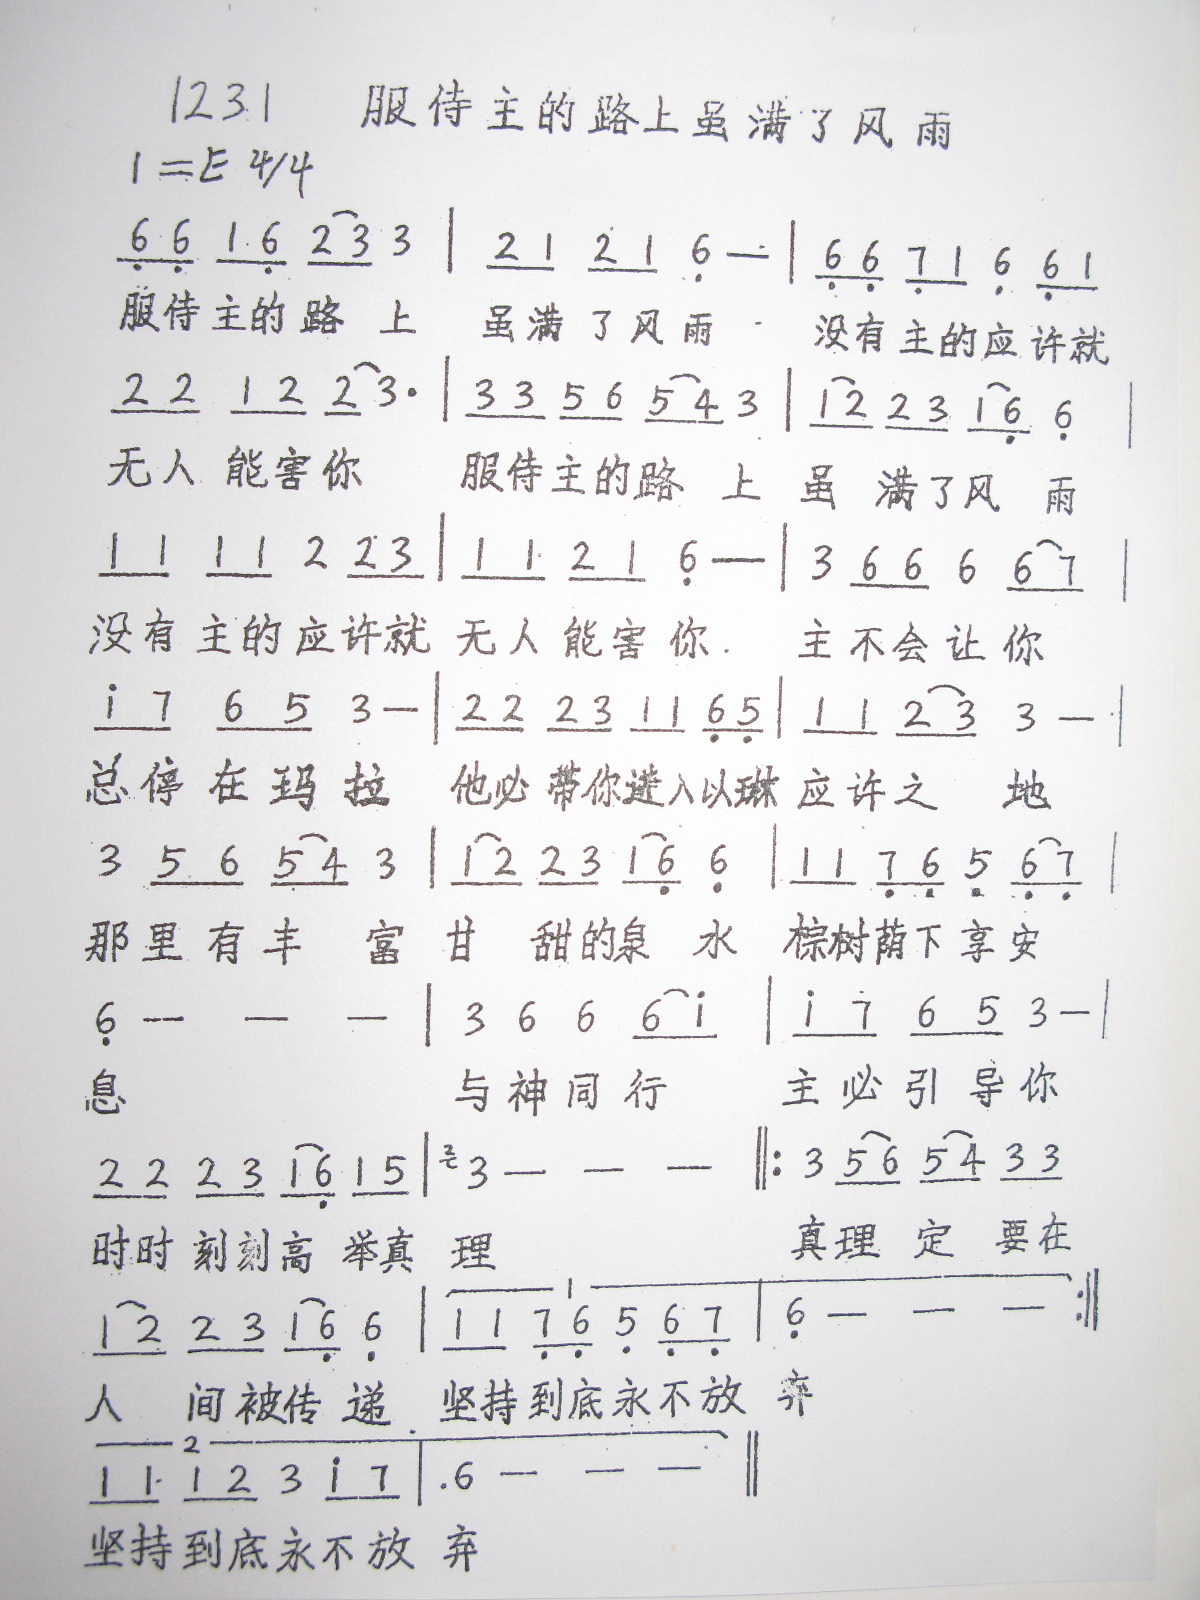 1231 服侍主的路上虽满了风雨
1=E 4/4
6 6 1 6 2 3 3 | 2 1 2 1 6 — | 6 6 7 1 6 6 1
服侍主的路 上 虽满了风雨 没有主的应许就
2 2 1 2 2 3· | 3 3 5 6 5 4 3 | 1 2 2 3 1 6 6 |
无人能害你 服侍主的路 上 虽 满了风 雨
1 1 1 1 2 2 3 | 1 1 2 1 6 — | 3 6 6 6 6 7 |
没有主的应许就 无人能害你. 主不会让你
i 7 6 5 3 — | 2 2 2 3 1 1 6 5 | 1 1 2 3 3 — |
总停在玛拉 他必带你进入以琳 应许之 地
3 5 6 5 4 3 | 1 2 2 3 1 6 6 | 1 1 7 6 5 6 7 |
那里有丰 富 甘 甜的泉 水 棕树荫下享安
6 — — — | 3 6 6 6 i | i 7 6 5 3 — |
息 与神同行 主必引导你
2 2 2 3 1 6 1 5 | 3 — — — ‖: 3 5 6 5 4 3 3
时时刻刻高举真 理 真理定要在
1 2 2 3 1 6 6 | 1 1 1 7 6 5 6 7 | 6 — — — :‖
人 间被传递 坚持到底永不放 弃
2
1 1 1 2 3 i 7 | .6 — — — ‖
坚持到底永不放 弃